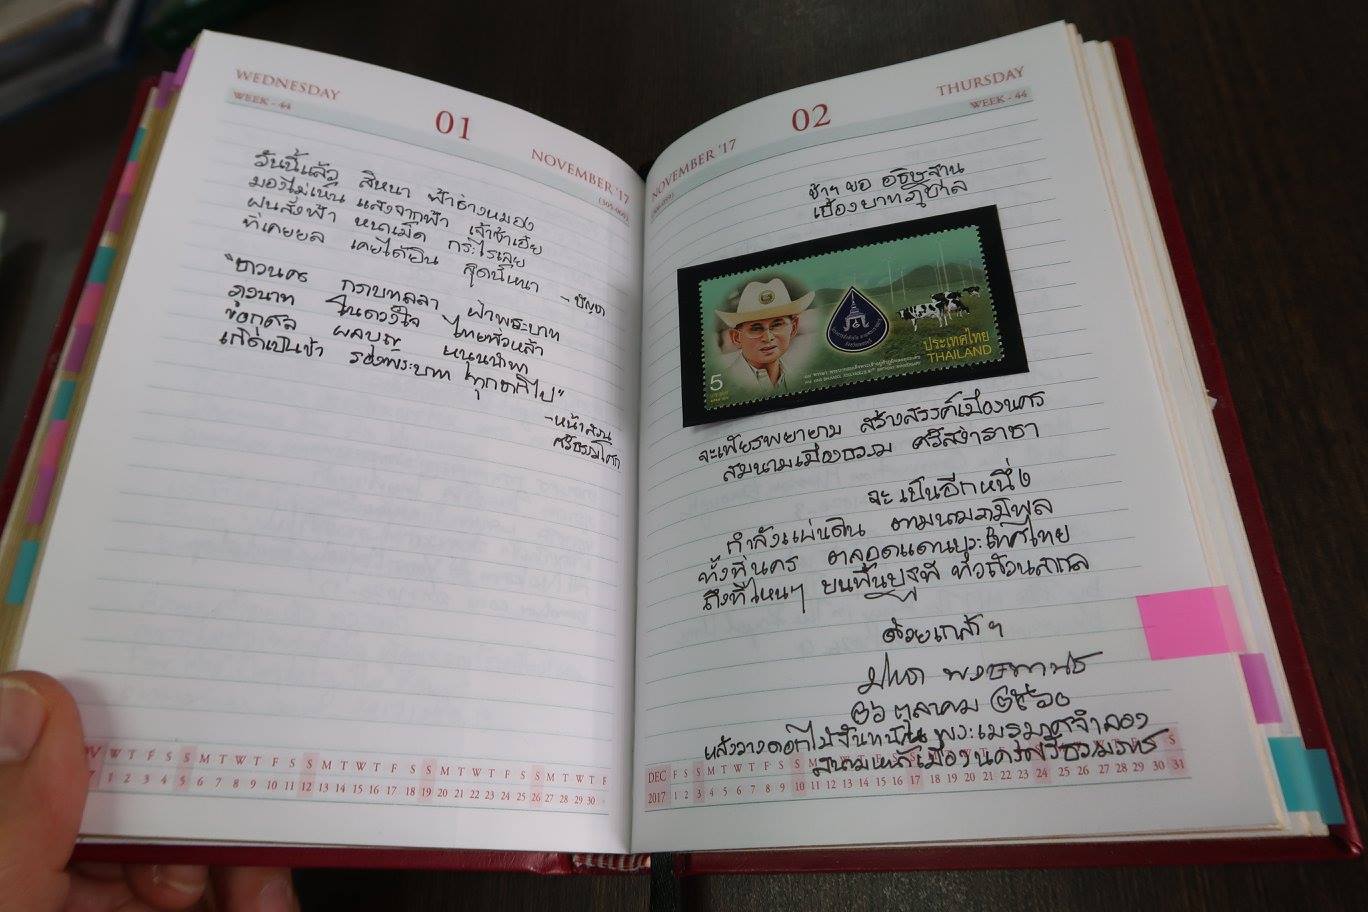 WEDNESDAY
WEEK - 44
01
NOVEMBER '17
วันนี้แล้ว สิหนา ฟ้าช่างหมอง
มองไม่เห็น แสงจากฟ้า เจ้าข้าเอ๋ย
ฝนสั่งฟ้า หนาเม็ด กระไรเลย
ที่เคยยล เคยได้ยิน สุดนี้หนา - ปัญดา
"ชาวนคร กราบทูลลา ฝ่าพระบาท
ภูวนาท ในดวงใจ ไทยทั่วหล้า
ขอกุศล ผลบุญ หนุนนำพา
เกิดเป็นข้า รองพระบาท ทุกชาติไป"
THURSDAY
WEEK - 44
02
NOVEMBER '17
ข้าฯ ขอ อธิษฐาน
เบื้องบาทภูบาล
5
ประเทศไทย
THAILAND
จะเพียรพยายาม สร้างสรรค์เมืองนคร
สมนามเมืองธรรม ศรีสง่าราชา
จะ เป็นอีกหนึ่ง
กำลังแผ่นดิน ตามนามภูมิพล
ทั้งที่นคร ตลอดแดนประเทศไทย
ถึงที่ไหนๆ บนพื้นปฐพี ทั่วถ้วนสากล
ด้วยเกล้าฯ
๒๖ ตุลาคม ๒๕๖๐
หลังวางดอกไม้จันทน์ใน พระเมรุมาศจำลอง
สนามหน้าเมืองนครศรีธรรมราช
W T F S S M T W T F S S M T W T F S S M T W T F S S M T W T F
1 2 3 4 5 6 7 8 9 10 11 12 13 14 15 16 17 18 19 20 21 22 23 24 25 26 27 28 29 30
DEC
2017 1 2 3 4 5 6 7 8 9 10 11 12 13 14 15 16 17 18 19 20 21 22 23 24 25 26 27 28 29 30 31